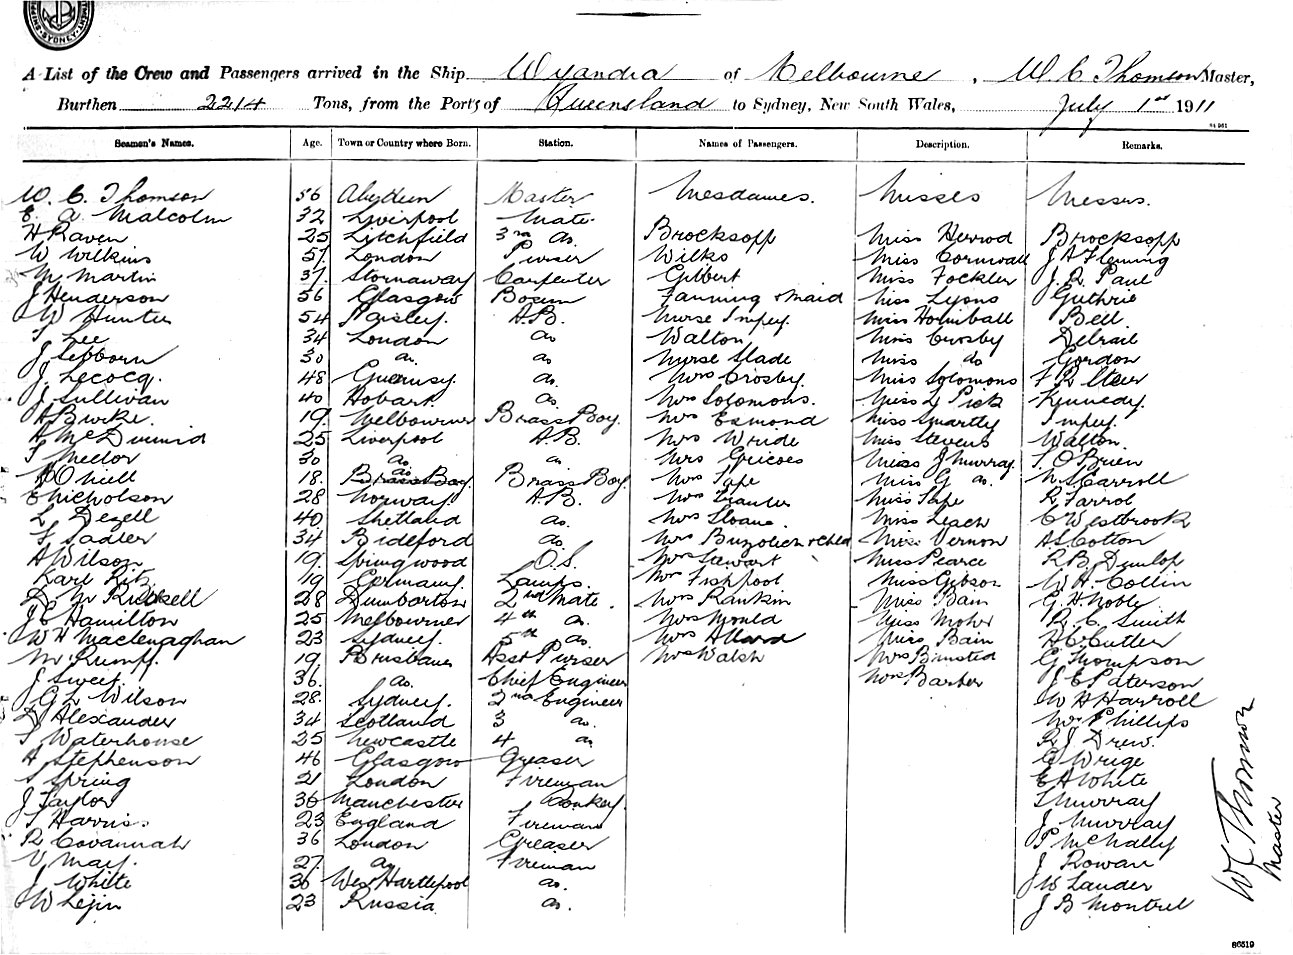 SYDNEY
A List of the Crew and Passengers arrived in the Ship Wyandra of Melbourne, W. C. Thomson Master,
Burthen 2214 Tons, from the Port of Queensland to Sydney, New South Wales, July 1st 1911
Seamen's Names. Age. Town or Country where Born. Station. Names of Passengers. Description. Remarks.
W. C. Thomson 56 Aberdeen Master Mesdames. Misses Messrs.
E. A. Malcolm 32 Liverpool Mate.
H Raven 25 Litchfield 3rd do. Brocksopp Miss Herrod Brocksopp
W Wilkins 51 London Purser Wilks Miss Cornwall J A Fleming
M Martin 37 Stornaway Carpenter Gibbert Miss Fockler J. R. Paul
J Henderson 56 Glasgow Bosun Fanning & Maid Miss Lyons Guthrie
W Hunter 54 Paisley. A.B. Nurse Impey. Miss Homiball Bell.
T Lee 34 London do Walton Miss Crosby Delrail
J Sebborn 30 do. do Nurse Slade Miss do Gordon
J. Lecocq. 48 Guernsy. do. Mrs Crosby. Miss Solomons F R Steer
J Sullivan 40 Hobart. do. Mrs Solomons. Miss L Pick Kennedy.
A Burke. 19. Melbourne Brass Boy. Mrs Esmond Miss Smartly Impey.
A McDiarmid 25 Liverpool A.B. Mrs Wride Miss Stevens Walton.
T Mellor 30 do do Mrs Gricoes Miss J Murray. T. O'Brien
H O'Neill 18. do Brass Boy Mrs Tape Miss G do. M S Carroll
E Nicholson 28 Norway. A.B. Mrs Miss Tape R Farrol
L Dezell 40 Shetland do. Mrs Sloane. Miss Leach C Westbrook
F Sadler 34 Bideford do. Mrs Buzolich & Child Miss Vernon A S Cotton
A Wilson 19. Springwood O.S. Mrs Stewart Miss Pearce R B. Dunlop
Karl Ritz 19 Germany. Lamps. Mrs Fishpool Miss Gibson W. H. Collin
D. M 28 Dumbarton 2nd Mate. Mrs Rankin Miss Bain G. H. Noble
J E Hamilton 25 Melbourne 4th do. Mrs Mould Miss Mohr R. C. Smith
W H Maclenaghan 23 Sydney. 5th do. Mrs Allard Miss Bain H C Cutler
M Rumpf. 19. Brisbane Asst Purser Mrs Walsh Mrs Binsted G Thompson
J Sweet. 36. do. Chief Engineer Mrs Barber J. E Paterson
G L Wilson 28. Sydney. 2nd Engineer W H Harroll
D Alexander 34 Scotland 3 do. Mrs Phillips
T Waterhouse 25 Newcastle 4 do R J Drew.
H Stephenson 46 Glasgow Greaser C Wrige
S Spring 21 London Fireman E A White
J Taylor 36 Manchester Donkey T Murray
T Harris. 23 England Fireman J Murray
R Cavannah 36 London Greaser P McNally
V May. 27. do Fireman J Rowan
J White 36 West Hartlepool do. J W Lauder
W Lejin 23 Russia do. J B Montrel
W C Thomson
Master
86519